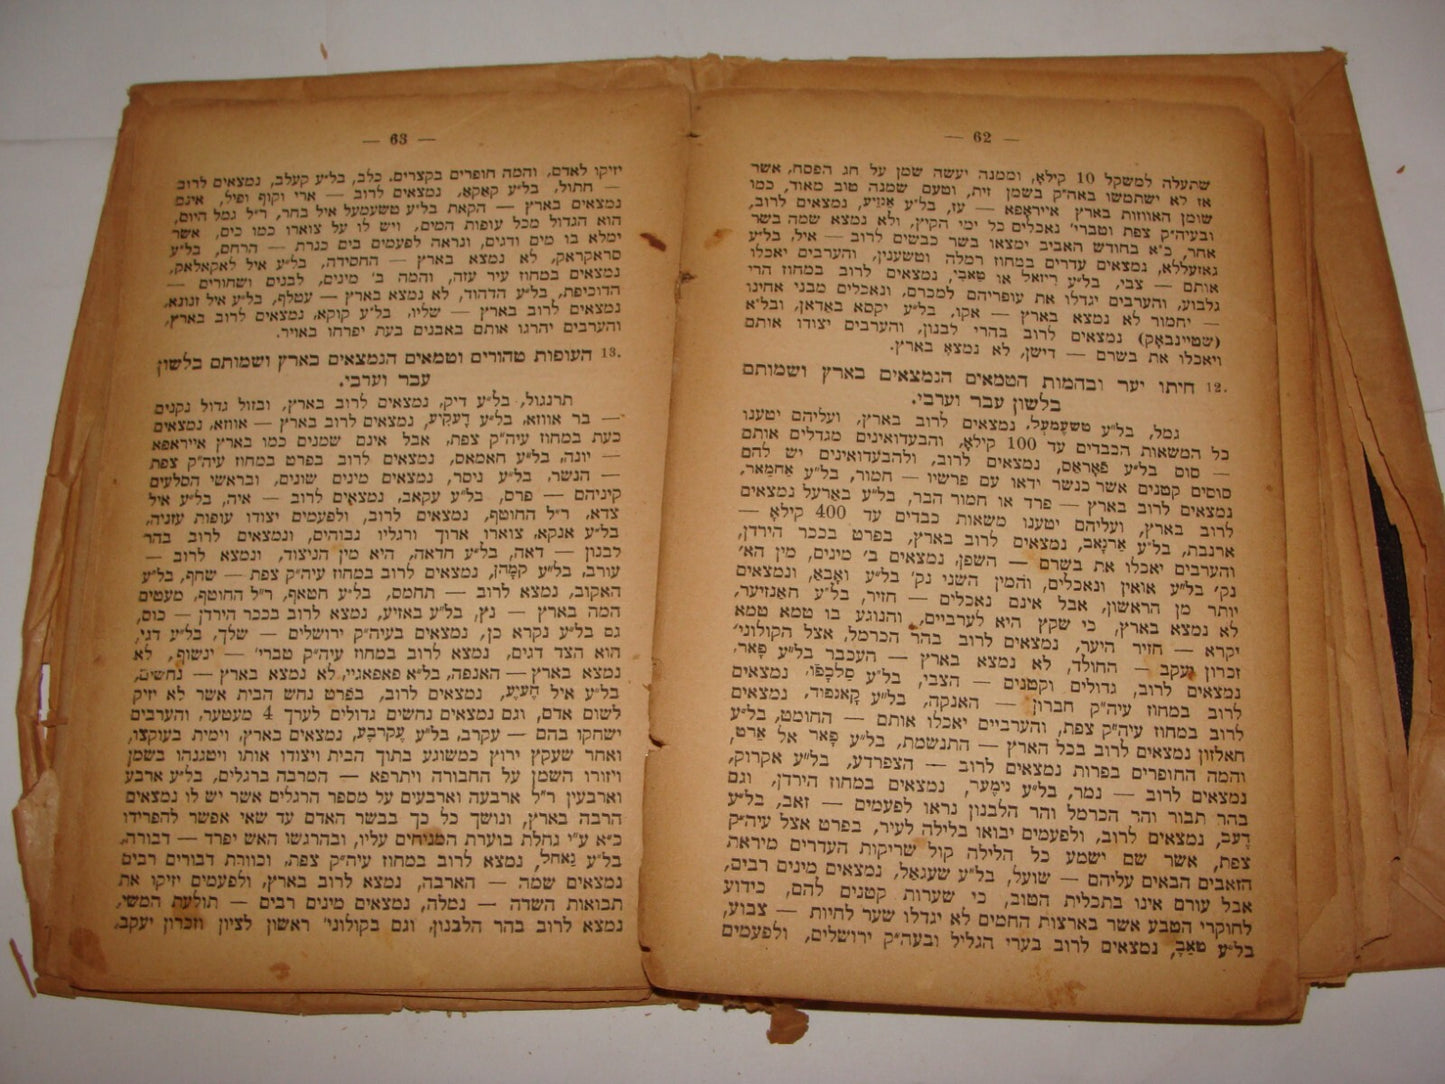 — 62 —
שתעלה למשקל 10 קילאָ, וממנה יעשה שמן על חג הפסח, אשר
אז לא ישתמשו באה״ק בשמן זית, וטעם שמנה טוב מאוד, כמו
שומן האווזות בארץ אייראָפא — עז, בל״ע נמצאים לרוב,
ובעיה״ק צפת וטברי׳ נאכלים כל ימי הקיץ, ולא נמצא שמה בשר
אחר, כ״א בחודש האביב ימצאו בשר כבשים לרוב — איל, בל״ע
גאזעללא, נמצאים עדרים במחוז רמלה וטשענין, והערבים יאכלו
אותם — צבי, בל״ע ריואל או טאבי, נמצאים לרוב במחוז הרי
גלבוע, והערבים יגדלו את עופריהם למכרם, ונאכלים מבני אחינו
— יחמור לא נמצא בארץ — אקו, בל״ע יקסא באדאן, ובל״א
(שטיינבאָק) נמצאים לרוב בהרי לבנון, והערבים יצודו אותם
ויאכלו את בשרם — דישן, לא נמצא בארץ.
12. חיתו יער ובהמות הטמאים הנמצאים בארץ ושמותם
בלשון עבר וערבי.
גמל, בל״ע טשעמעל, נמצאים לרוב בארץ, ועליהם יטענו
כל המשאות הכבדים עד 100 קילאָ, והבעדואינים מגדלים אותם
— סוס בל״ע פאָראַס, נמצאים לרוב, ולהבעדואינים יש להם
סוסים קטנים אשר כנשר ידאו עם פרשיו — חמור, בל״ע אחמאר,
נמצאים לרוב בארץ — פרד או חמור הבר, בל״ע באַרעל נמצאים
לרוב בארץ, ועליהם יטענו משאות כבדים עד 400 קילאָ —
ארנבת, בל״ע אַרנאַב, נמצאים לרוב בארץ, בפרט בככר הירדן,
והערבים יאכלו את בשרם — השפן, נמצאים ב׳ מינים, מין הא׳
נק׳ בל״ע אואין ונאכלים, והמין השני נק׳ בל״ע ואָבאַ, ונמצאים
יותר מן הראשון, אבל אינם נאכלים — חזיר, בל״ע חאנזיער,
לא נמצא בארץ, כי שקץ היא לערביים, והנוגע בו טמא טמא
יקרא — חזיר היער, נמצאים לרוב בהר הכרמל, אצל הקולוני׳
זכרון יעקב — החולד, לא נמצא בארץ — העכבר בל״ע פאַר,
נמצאים לרוב, גדולים וקטנים — הצבי, בל״ע סלכפו, נמצאים
לרוב במחוז עיה״ק חברון — האנקה, בל״ע קאָנפוד, נמצאים
לרוב במחוז עיה״ק צפת, והערביים יאכלו אותם — החומט, בל״ע
חאלזון נמצאים לרוב בכל הארץ — התנשמת, בל״ע פאַר אל אַרט,
והמה החופרים בפרות נמצאים לרוב — הצפרדע, בל״ע אקרוק,
נמצאים לרוב — נמר, בל״ע נימער, נמצאים במחוז הירדן, וגם
בהר תבור והר הכרמל והר הלבנון נראו לפעמים — זאב, בל״ע
דעב, נמצאים לרוב, ולפעמים יבואו בלילה לעיר, בפרט אצל עיה״ק
צפת, אשר שם ישמע כל הלילה קול שריקות העדרים מיראת
הזאבים הבאים עליהם — שועל, בל״ע שעגאַל, נמצאים מינים רבים,
אבל עורם אינו בתכלית הטוב, כי שערות קטנים להם, כידוע
לחוקרי הטבע אשר בארצות החמים לא יגדלו שער לחיות — צבוע,
בל״ע טאַבאָ, נמצאים לרוב בערי הגליל ובעה״ק ירושלים, ולפעמים
— 63 —
יזיקו לאדם, והמה חופרים בקצרים. כלב, בל״ע קעלב, נמצאים לרוב
— חתול, בל״ע קאקא, נמצאים לרוב — ארי וקוף ופיל, אינם
נמצאים בארץ — הקאת בל״ע טשעמעל איל בחר, ר״ל גמל היום,
הוא הגדול מכל עופות המים, ויש לו על צוארו כמו כים, אשר
ימלא בו מים ודגים, ונראה לפעמים בים כנרת — הרחם, בל״ע
סראקראק, לא נמצא בארץ — החסידה, בל״ע איל לאקאלאק,
נמצאים במחוז עיר עזה, והמה ב׳ מינים, לבנים ושחורים —
הדוכיפת, בל״ע הדהוד, לא נמצא בארץ — עטלף, בל״ע איל זנונא,
נמצאים לרוב בארץ — שליו, בל״ע קוקא, נמצאים לרוב בארץ,
והערבים יהרגו אותם באבנים בעת יפרחו באויר.
13. העופות טהורים וטמאים הנמצאים בארץ ושמותם בלשון
עבר וערבי.
תרנגול, בל״ע דיק, נמצאים לרוב בארץ, ובזול גדול נקנים
— בר אווזא, בל״ע נמצאים לרוב בארץ — אווזא, נמצאים
כעת במחוז עיה״ק צפת, אבל אינם שמנים כמו בארץ אייראפא
— יונה, בל״ע חאמאם, נמצאים לרוב בפרט במחוז עיה״ק צפת
— הנשר, בל״ע ניסר, נמצאים מינים שונים, ובראשי הסלעים
קיניהם — פרס, בל״ע עקאב, נמצאים לרוב — איה, בל״ע איל
צדא, ר״ל החוטף, נמצאים לרוב, ולפעמים יצודו עופות עזניה,
בל״ע אנקא, צוארו ארוך ורגליו גבוהים, ונמצאים לרוב בהר
לבנון — דאה, בל״ע חדאה, היא מין הניצוד, ונמצא לרוב —
עורב, בל״ע נמצאים לרוב במחוז עיה״ק צפת — שחף, בל״ע
האקוב, נמצא לרוב — תחמס, בל״ע חטאף, ר״ל החוטף, מעטים
המה בארץ — נץ, בל״ע באזיע, נמצא לרוב בככר הירדן — כוס,
גם בל״ע נקרא כן, נמצאים בעיה״ק ירושלים — שלך, בל״ע דגי,
הוא הצד דגים, נמצא לרוב במחוז עיה״ק טברי׳ — ינשוף, לא
נמצא בארץ — האנפה, בל״א פאפאגיי, לא נמצא בארץ — נחשים,
בל״ע איל חעיע, נמצאים לרוב, בפרט נחש הבית אשר לא יזיק
לשום אדם, וגם נמצאים נחשים גדולים לערך 4 מעטער, והערבים
ישחקו בהם — עקרב, בל״ע עקרבע, נמצאים בארץ, וימית בעוקצו,
ואחר שעקץ ירוץ כמשוגע בתוך הבית ויצודו אותו ויטגנהו בשמן
ויזורו השמן על החבורה ויתרפא — המרבה ברגלים, בל״ע ארבע
וארבעין ר״ל ארבעה וארבעים על מספר הרגלים אשר יש לו נמצאים
הרבה בארץ, ונושך כל כך בבשר האדם עד שאי אפשר להפרידו
כ״א ע״י גחלת בוערת המניחים עליו, ובהרגשו האש יפרד — דבורה,
בל״ע נאחל, נמצא לרוב במחוז עיה״ק צפת, וכוורת דבורים רבים
נמצאים שמה — הארבה, נמצא לרוב בארץ, ולפעמים יזיקו את
תבואות השדה — נמלה, נמצאים מינים רבים — תולעת המשי,
נמצא לרוב בהר הלבנון, וגם בקולוני׳ ראשון לציון וזכרון יעקב,